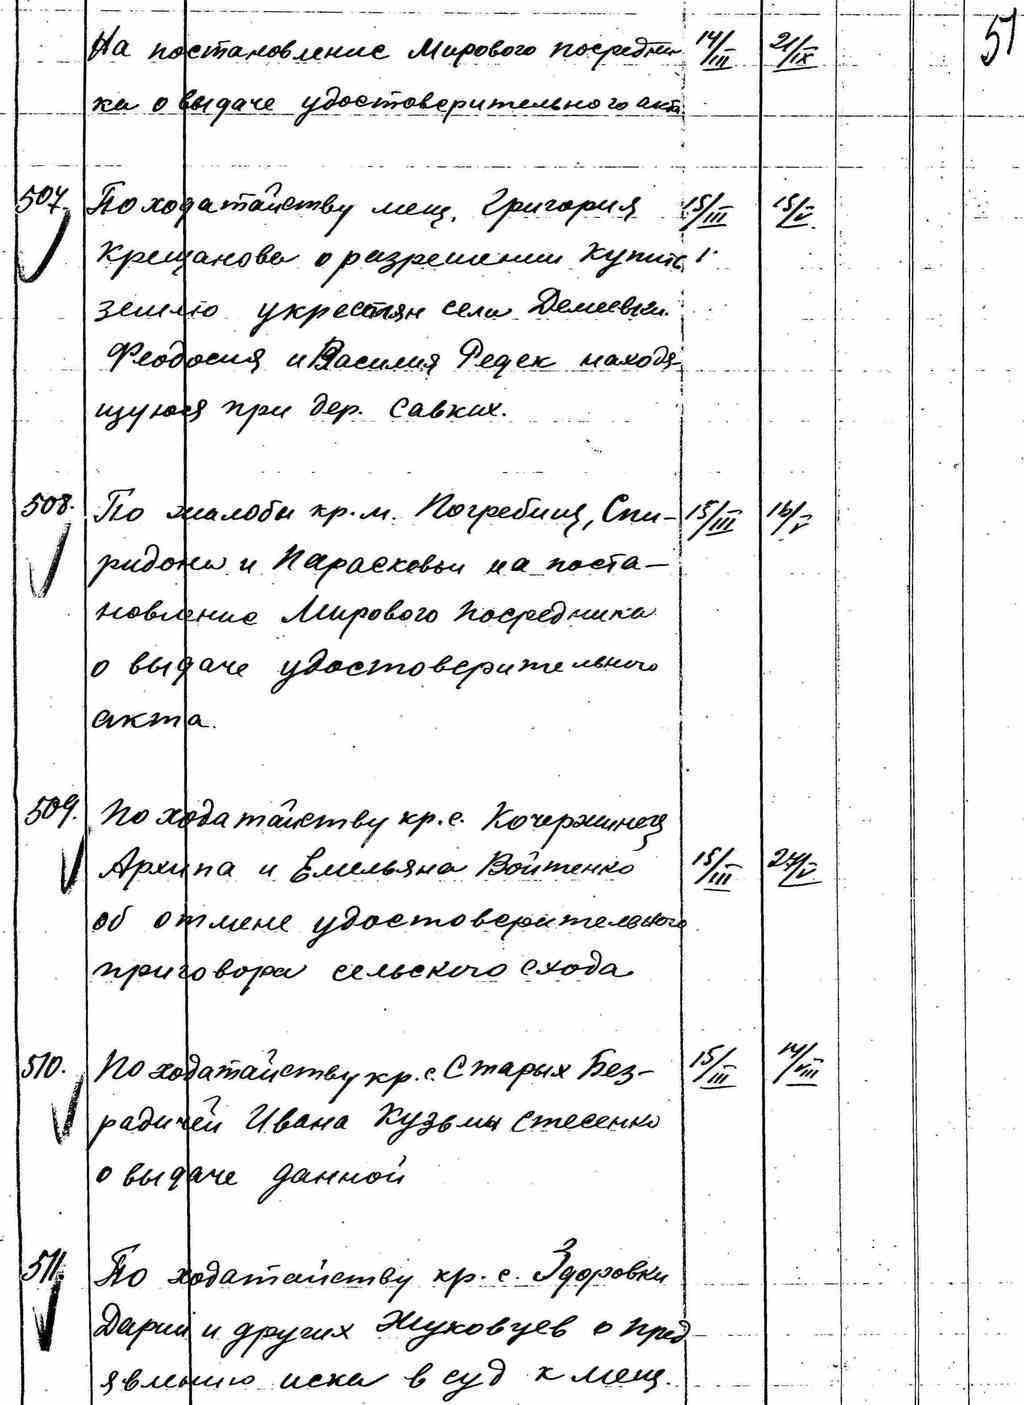 51
На постановление Мирового посредни- 14/III 21/IX
ка о выдаче удостоверительного акта.
507. По ходатайству мещ. Григория 15/III 15/V
Крещанова о разрешении купить
землю у крестьян села Демеевки
Феодосия и Василия Редек находя-
щуюся при дер. Савких.
508. По жалобы кр. м. Погребищ, Спи- 15/III 16/V
ридона и Парасковьи на поста-
новление Мирового Посредника
о выдаче удостоверительного
акта.
509. По ходатайству кр. с. Кочержинец
Архипа и Емельяна Войтенко 15/III 27/V
об отмене удостоверительного
приговора сельского схода
510. По ходатайству кр. с. Старых Без- 15/III 14/VIII
радичей Ивана Кузьмы Стесенко
о выдаче данной
511. По ходатайству кр. с. Здоровки
Дарии и других Жуковцев о пред-
явлению иска в суд к мещ.